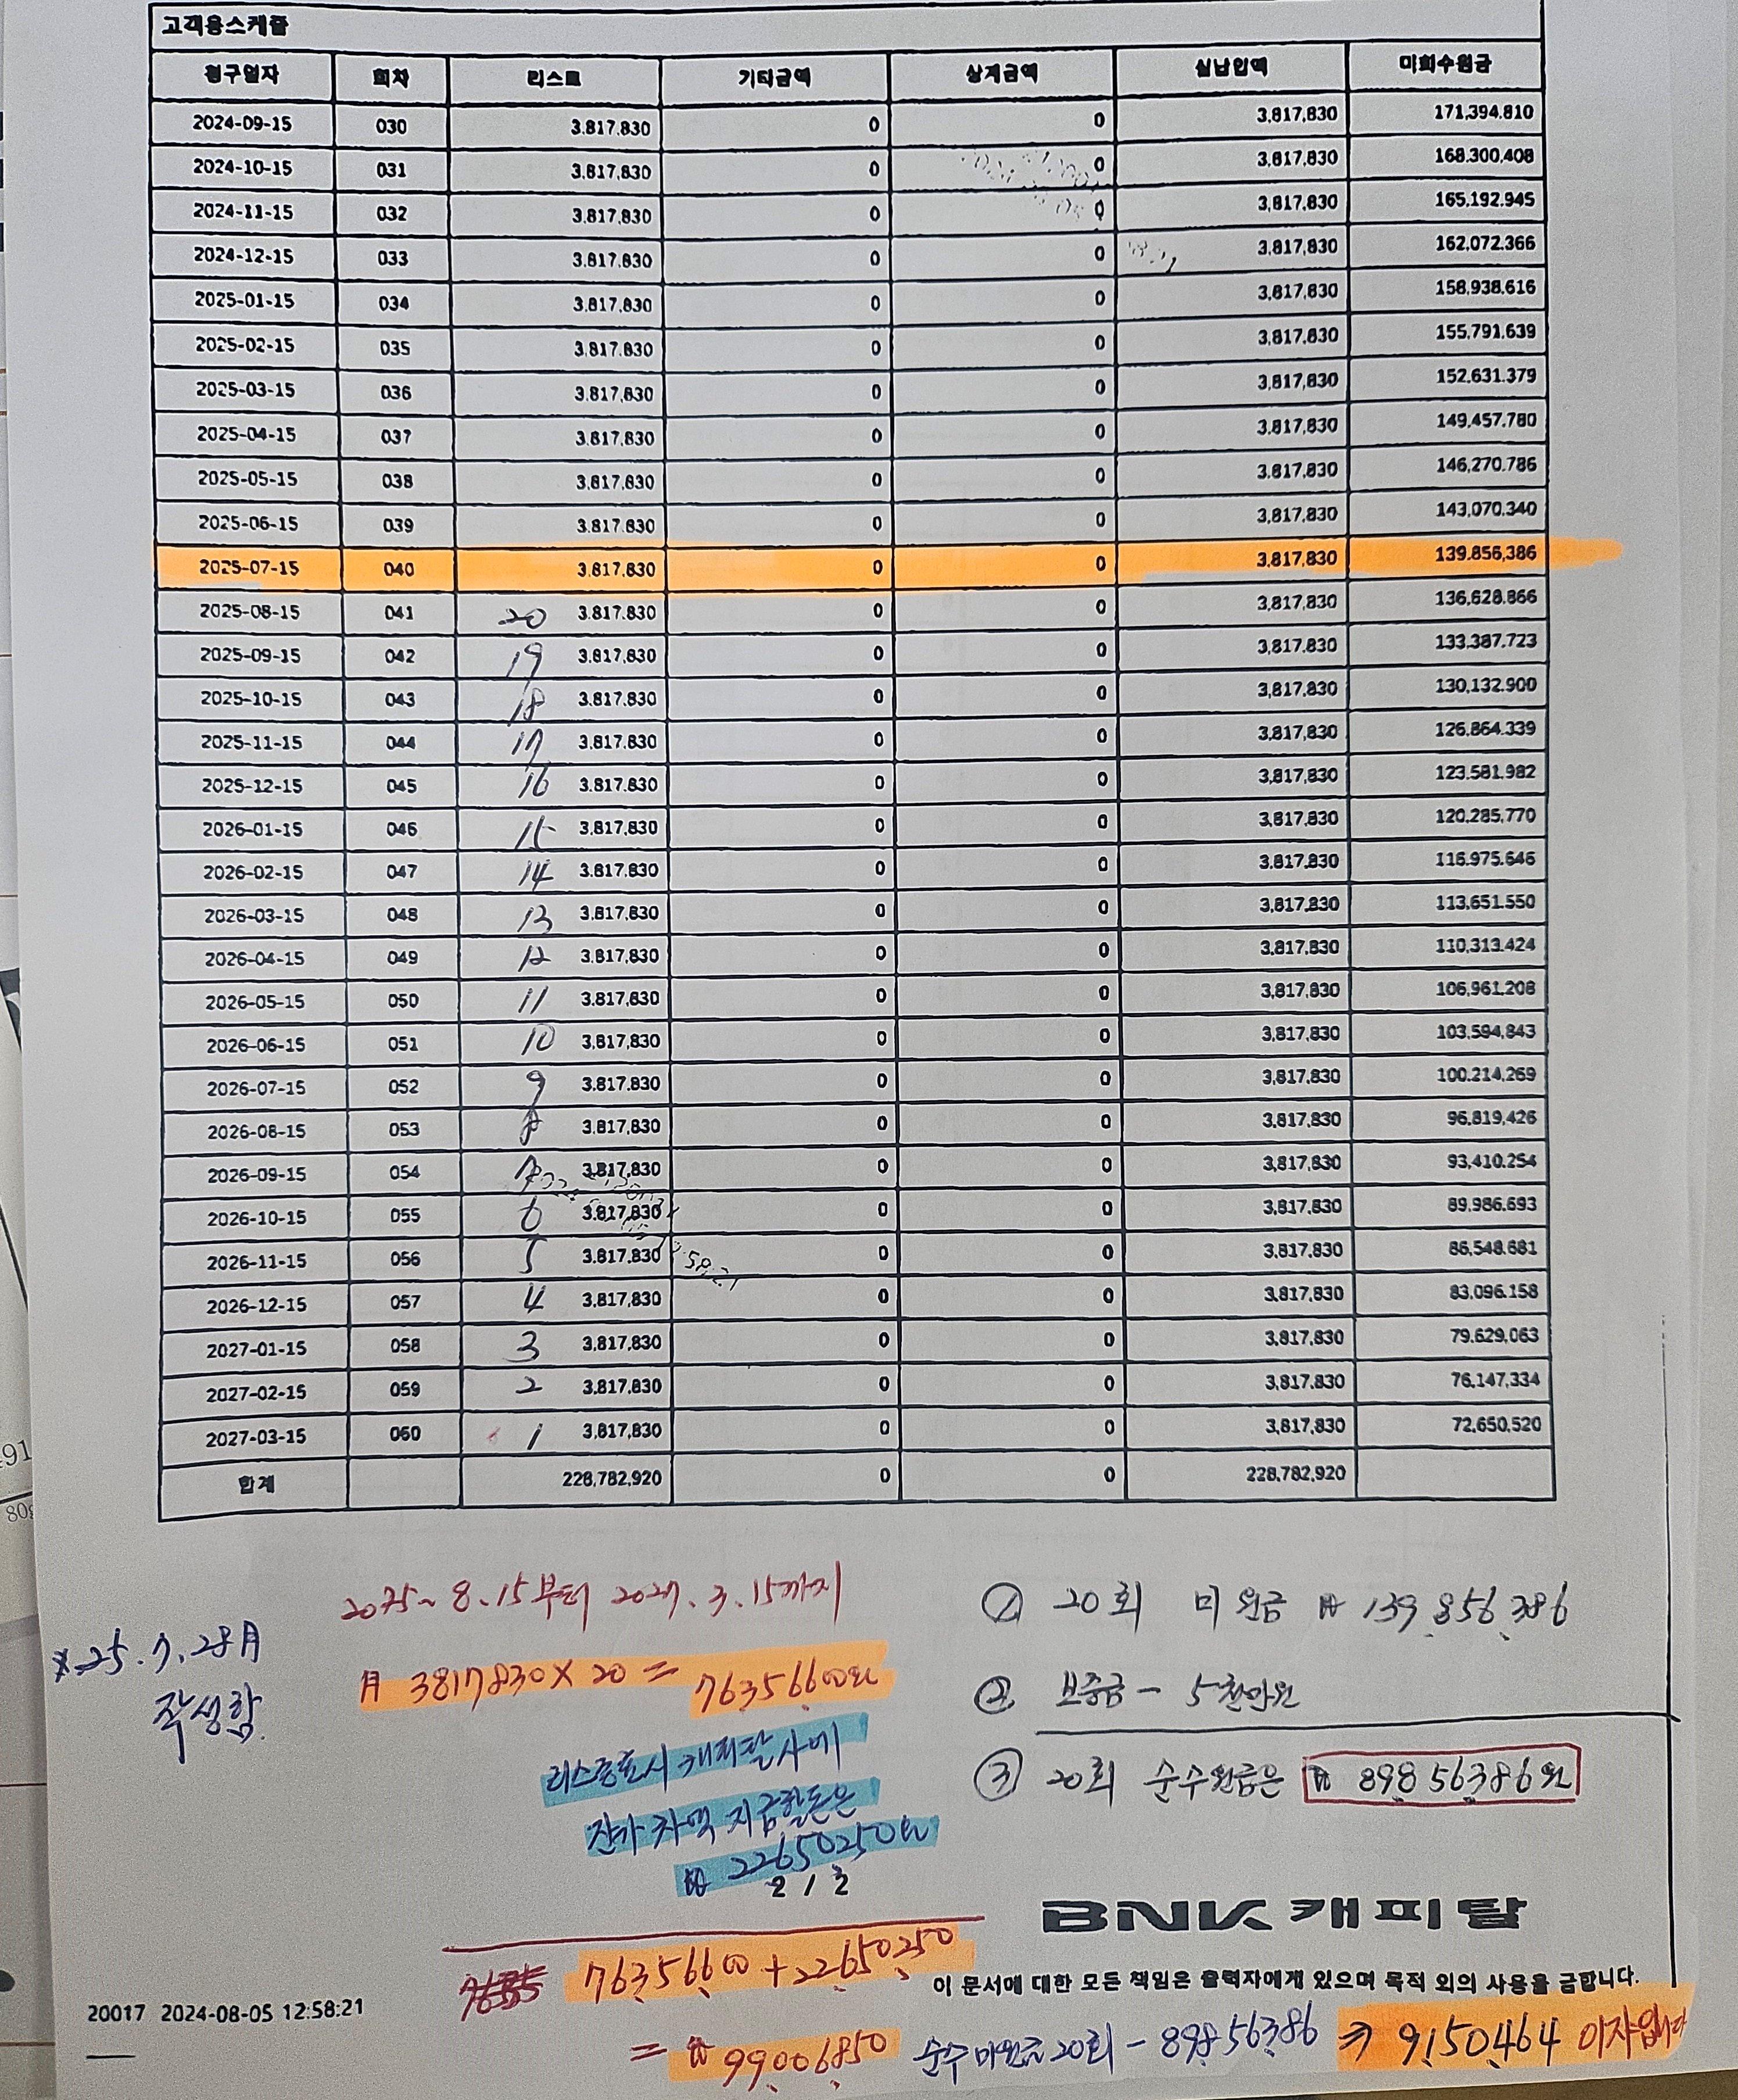 고객용스케쥴
청구일자 회차 리스료 기타금액 상계금액 실납입액 미회수원금
2024-09-15 030 3.817.830 0 0 3.817,830 171,394.810
2024-10-15 031 3.817.830 0 0 3.817,830 168.300,408
2024-11-15 032 3.817.830 0 0 3,817,830 165,192.945
2024-12-15 033 3.817.830 0 0 3,817,830 162,072.366
2025-01-15 034 3.817.830 0 0 3,817,830 158,938,616
2025-02-15 035 3.817.830 0 0 3,817,830 155,791,639
2025-03-15 036 3.817,830 0 0 3,817,830 152,631,379
2025-04-15 037 3,817,830 0 0 3.817,830 149,457,780
2025-05-15 038 3,817,830 0 0 3.817,830 146,270,786
2025-06-15 039 3.817.830 0 0 3,817,830 143,070,340
2025-07-15 040 3,817,830 0 0 3,817,830 139.856,386
2025-08-15 041 20 3,817.830 0 0 3,817,830 136,628,866
2025-09-15 042 19 3.817.830 0 0 3,817.830 133,387,723
2025-10-15 043 18 3,817.830 0 0 3,817,830 130,132.900
2025-11-15 044 17 3.817.830 0 0 3.817,830 126,864.339
2025-12-15 045 16 3.817.830 0 0 3,817,830 123.581,982
2026-01-15 046 15 3,817,830 0 0 3,817,830 120,285,770
2026-02-15 047 14 3.817.830 0 0 3.817.830 116.975.646
2026-03-15 048 13 3.817,830 0 0 3,817,830 113,651.550
2026-04-15 049 12 3.817,830 0 0 3,817,830 110,313.424
2026-05-15 050 11 3.817,830 0 0 3,817,830 106,961,208
2026-06-15 051 10 3,817,830 0 0 3,817,830 103,594,843
2026-07-15 052 9 3.817.830 0 0 3,817,830 100.214,269
2026-08-15 053 8 3.817,830 0 0 3.817,830 96,819,426
2026-09-15 054 7 3,817,830 0 0 3,817,830 93,410.254
2026-10-15 055 6 3.817,830 0 0 3,817.830 89,986.693
2026-11-15 056 5 3.817,830 0 0 3,817.830 86,548.681
2026-12-15 057 4 3,817,830 0 0 3,817,830 83,096.158
2027-01-15 058 3 3,817,830 0 0 3,817,830 79.629,063
2027-02-15 059 2 3,817,830 0 0 3,817.830 76,147,334
2027-03-15 060 1 3,817,830 0 0 3,817,830 72,650,520
합계 228,782,920 0 0 228.782,920
2025~8.15부터 2027.3.15까지
*25.7.28月
작성함.
月 3817830×20=76356600원
리스종료시 캐피탈사에
잔가 차액 지급할돈은
₩22650250원
① 20회 미원금 ₩139,856,386
② 보증금 - 5천만원
③ 20회 순수원금은 ₩89856386원
2 / 2
BNK캐피탈
이 문서에 대한 모든 책임은 출력자에게 있으며 목적 외의 사용을 금합니다.
76356600+22650250
20017 2024-08-05 12:58:21
=₩99006850 순수미원금20회-89856386 ⇒ 9150464 이자입니다